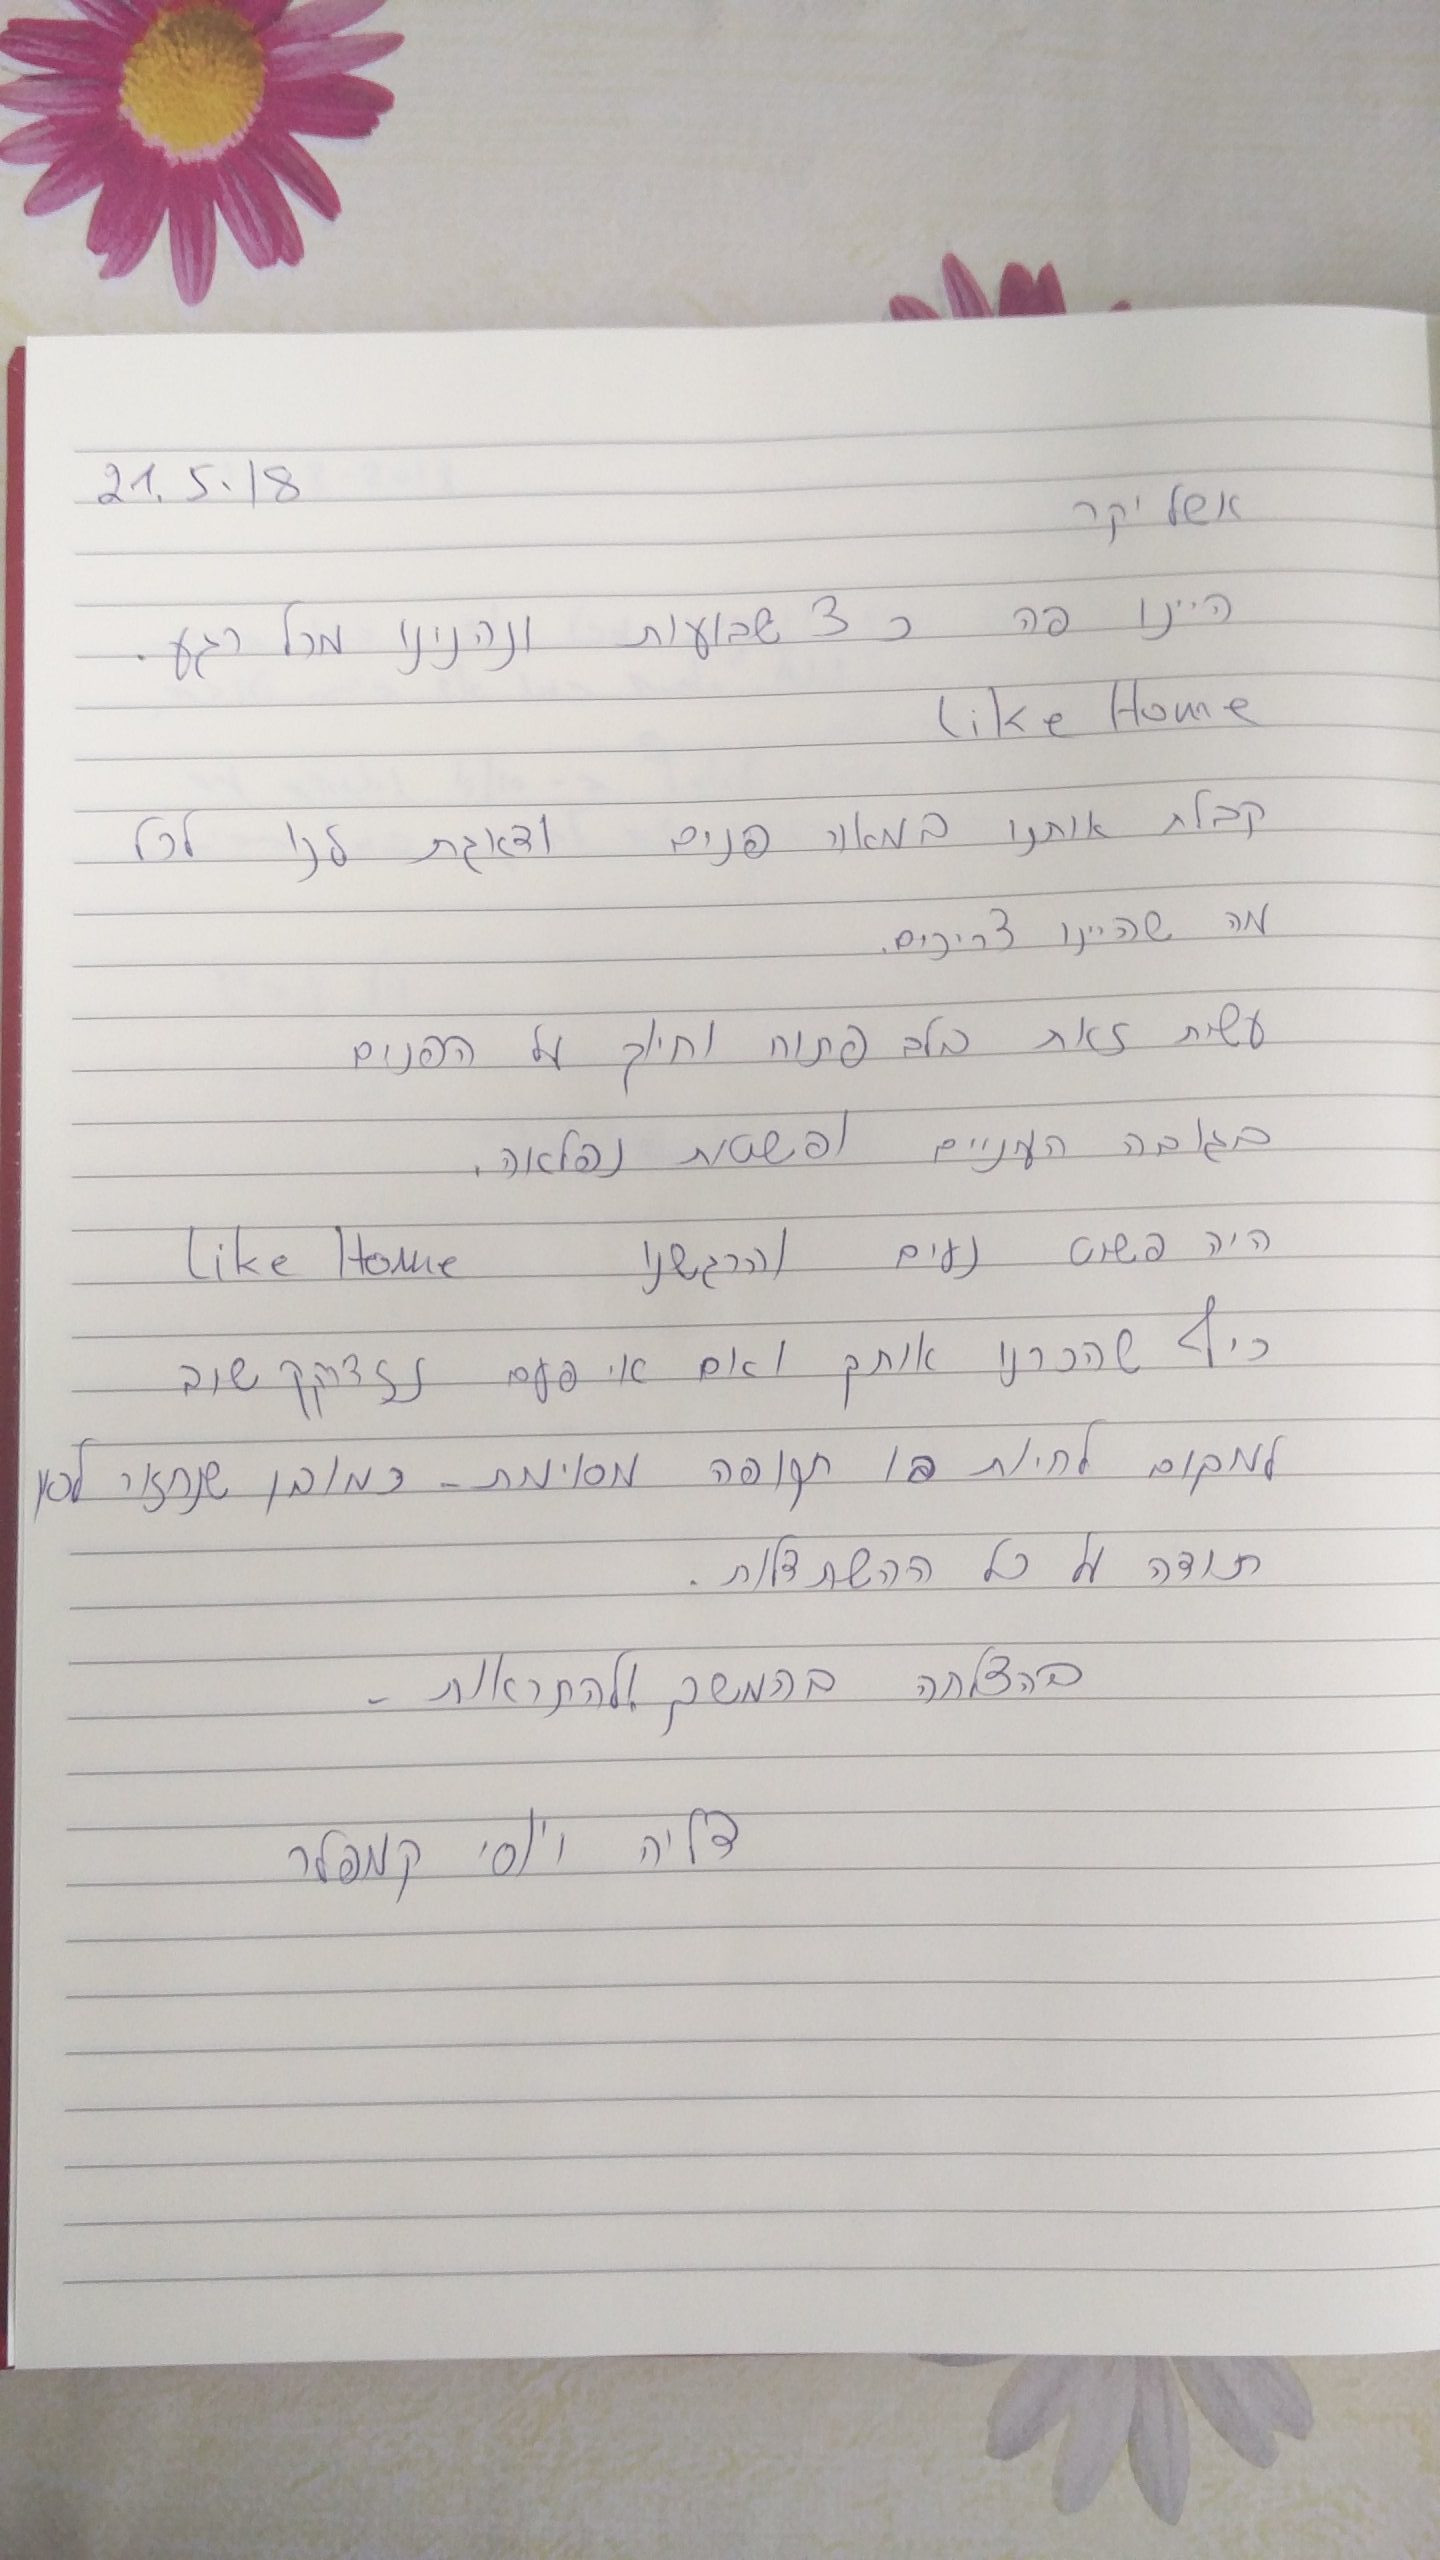 21.5.18
אשל יקר
היינו פה כ 3 שבועות ונהנינו מכל רגע.
Like Home
קבלת אותנו במאור פנים ודאגת לנו לכל
מה שהיינו צריכים.
עשית זאת בלב פתוח וחיוך על הפנים
בגובה העניים ופשטות נפלאה.
היה פשוט נעים והרגשנו Like Home
כיף שהכרנו אותך ואם אי פעם נזדקק שוב
למקום לחיות בו תקופה מסוימת - כמובן שנחזור לכאן
תודה על כל ההשתדלות.
בהצלחה בהמשך ולהתראות -
דליה ויוסי קמפלר